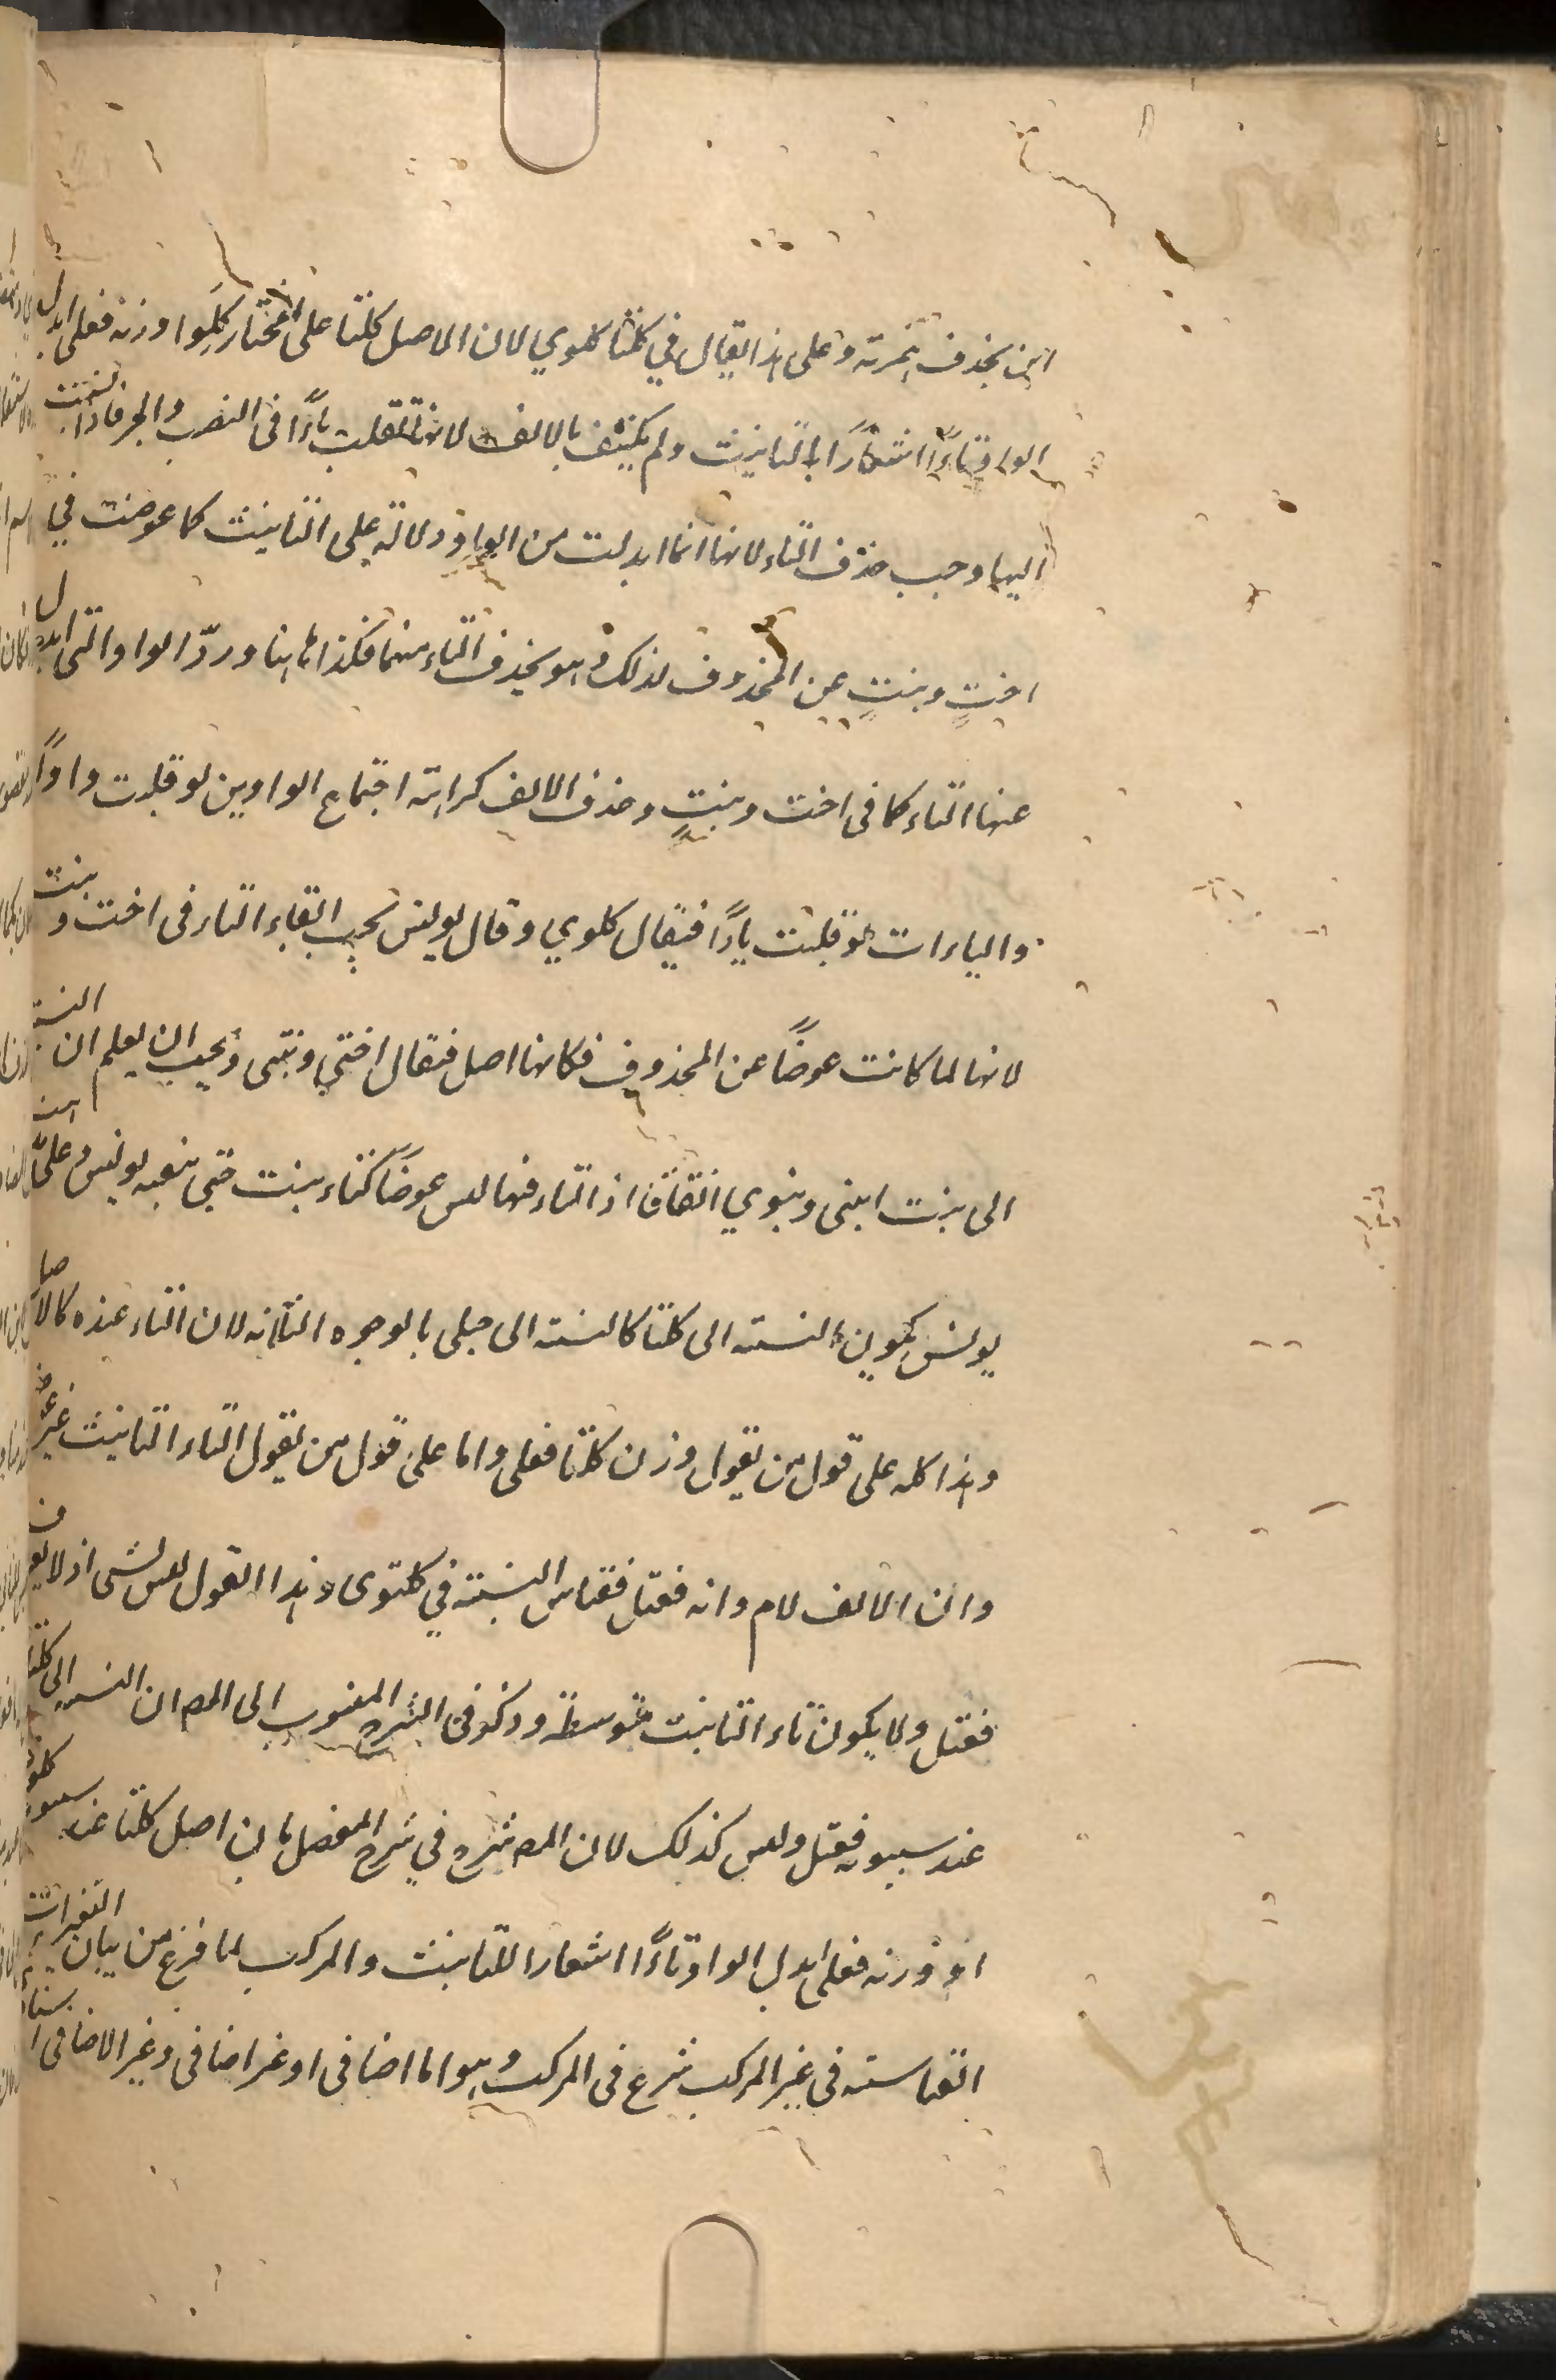 ابن بحذف همزته وعلى هذا يقال في كلتا كلوي لان الاصل كلتا على المختار كلوا وزنه فعلى ابدل
الواو تاءً اشعارًا بالتانيث ولم يكتف بالالف لانها تنقلب ياءً في النصب والجر فاذا نسبت
اليها وجب حذف التاء لانها انما ابدلت من الواو دلالة على التانيث كما عوضت في
اختٍ وبنتٍ عن المحذوف لذلك وهو بحذف التاء منهما فكذا هاهنا وردّ الواو التي ابدل
عنها التاء كما في اخت وبنتٍ وحذف الالف كراهة اجتماع الواوين لو قلبت واوًا
والياءات لو قلبت ياءً فيقال كلوي وقال يونس يجب ابقاء التاء في اخت وبنت
لانها لما كانت عوضًا عن المحذوف فكانها اصل فيقال اختي وبنتي ويجب ان يعلم ان النسبة
الى ابنت ابني وبنوي اتفاقا اذ التاء فيها ليس عوضًا كتاء بنت حتى يتبعه يونس وعلى
يونس يكون النسبة الى كلتا كالنسبة الى حبلى بالوجوه الثلاثة لان التاء عنده كالاصل
وهذا كله على قول من يقول وزن كلتا فعلى واما على قول من يقول التاء التانيث غير عوض
وان الالف لام وانه فعتل فقياس النسبة في كلتوى وهذا القول ليس بشى اذ لا يعرف
فعتل ولا يكون تاء التانيث متوسطة وذكر في الشرح المنسوب الى المص ان النسبة الى كلتا
عند سيبويه فعتل وليس كذلك لان المص شرح في شرح المفصل بان اصل كلتا عند سيبويه كلوا
اذ وزنه فعلى ابدل الواو تاءً اشعارا للتانيث والمركب لما فرغ من بيان التغيرات
القياسية في غير المركب شرع في المركب وهو اما اضافى او غير اضافى وغير الاضافى